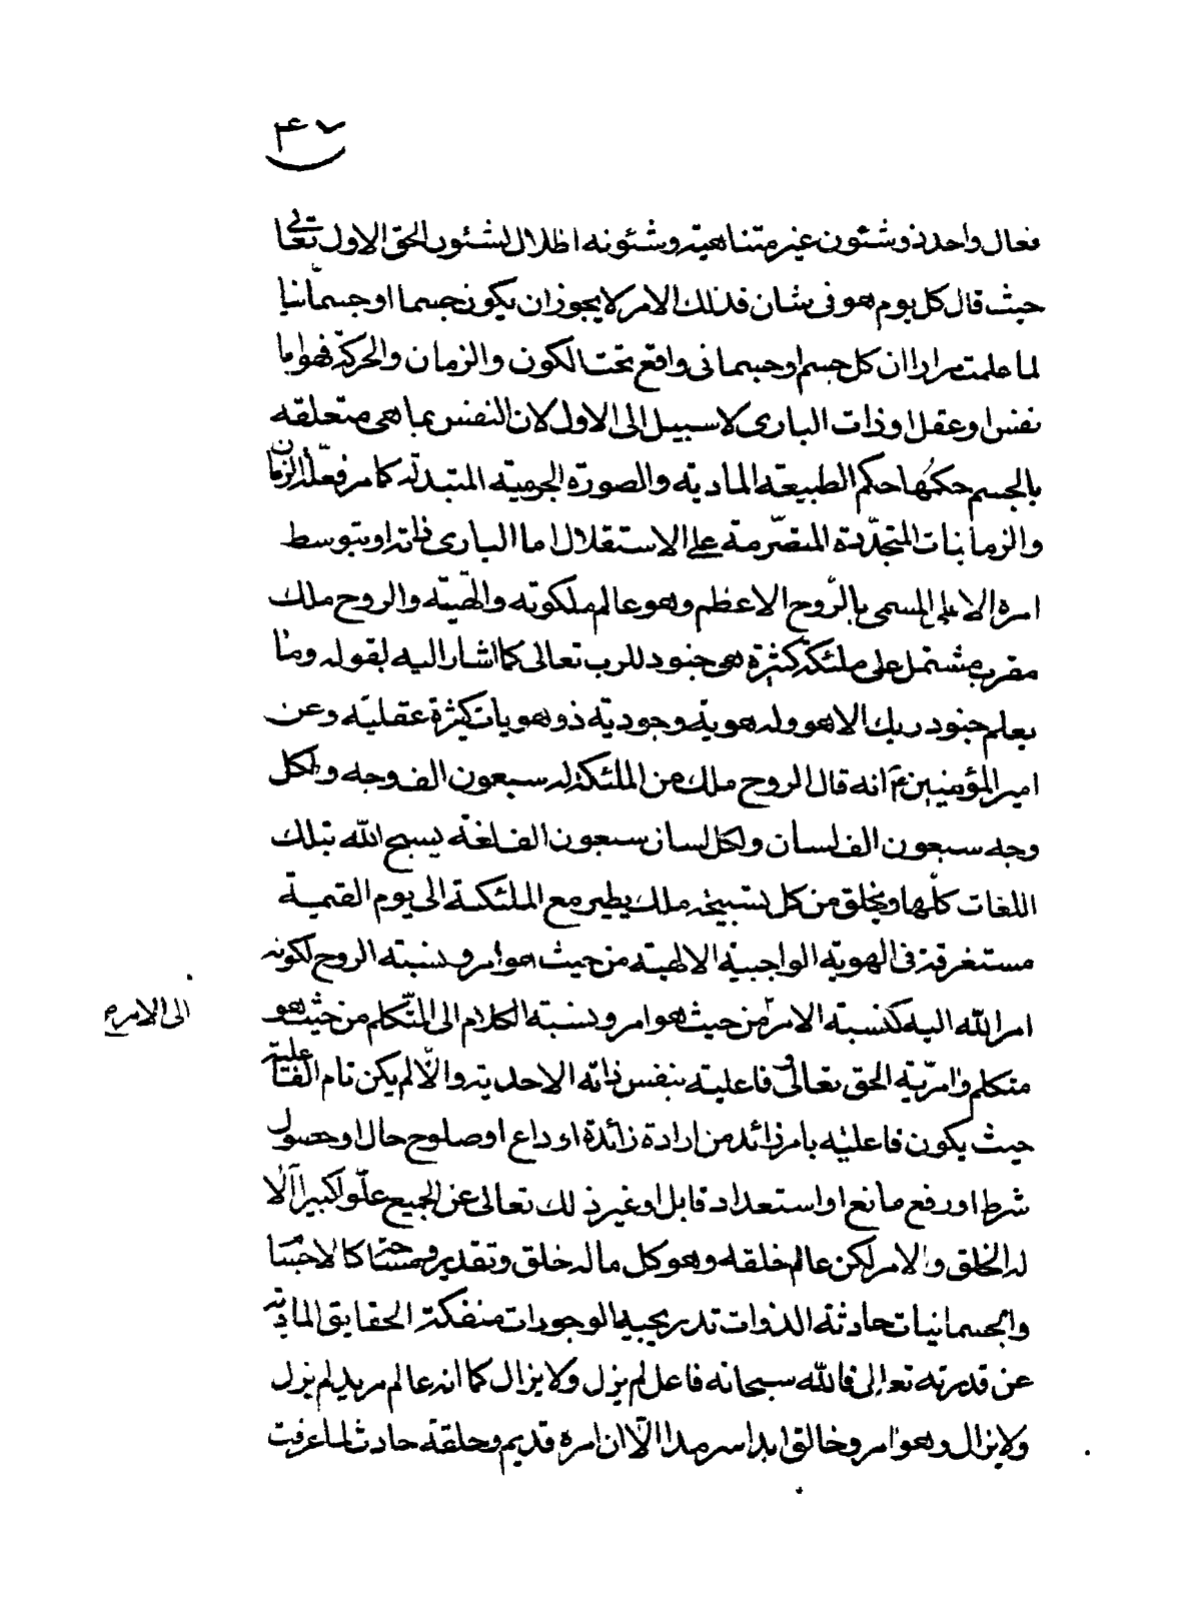 ٤٧
فعال واحد ذو شئون غير متناهية وشئونه اظلال لشئون الحق الاول تعالى
حيث قال كل يوم هو فى شان فذلك الامر لا يجوز ان يكون جسما او جسمانيا
لما علمت مرارا ان كل جسم او جسمانى واقع تحت الكون والزمان والحركة فهو اما
نفس او عقل او ذات البارى لا سبيل الى الاول لان النفس بما هى متعلقه
بالجسم حكمها حكم الطبيعة المادية والصورة الجرمية المتبدلة كما مر فعلة الزمان
والزمانيات المتجددة المتصرمة على الاستقلال اما البارى ذاته او بتوسط
امره الاعلى المسمى بالروح الاعظم وهو عالم ملكوته والهيته والروح ملك
مقرب مشتمل على ملئكة كثيرة هى جنود للرب تعالى كما اشار اليه بقوله وما
يعلم جنود ربك الا هو وله هوية وجودية ذو هويات كثيرة عقلية وعن
امير المؤمنين ع انه قال الروح ملك من الملئكة له سبعون الف وجه ولكل
وجه سبعون الف لسان ولكل لسان سبعون الف لغة يسبح الله بتلك
اللغات كلها ويخلق من كل تسبيحه ملك يطير مع الملئكة الى يوم القيمة
مستغرقة فى الهوية الواجبية الالهية من حيث هو امر ونسبته الروح لكونه
امر الله اليه كنسبة الامر من حيث هو امر ونسبة الكلام الى المتكلم من حيث هو
الى الامر
متكلم وامرية الحق تعالى وفاعليته بنفس ذاته الاحدية والا لم يكن تام الفاعلية
حيث يكون فاعليته بامر زائد من ارادة زائدة او داع او صلوح حال او حصول
شرط او رفع مانع او استعداد قابل او غير ذلك تعالى عن الجميع علوا كبيرا الا
له الخلق والامر لكن عالم خلقه وهو كل ما له خلق وتقدير ومساحة كالاجسام
والجسمانيات حادثة الذوات تدريجية الوجودات منفكة الحقايق المادية
عن قدرته تعالى فالله سبحانه فاعل لم يزل ولا يزال كما انه عالم مريد لم يزل
ولا يزال وهو امر وخالق ابدا سرمدا الا ان امره قديم وخلقه حادث لما عرفت